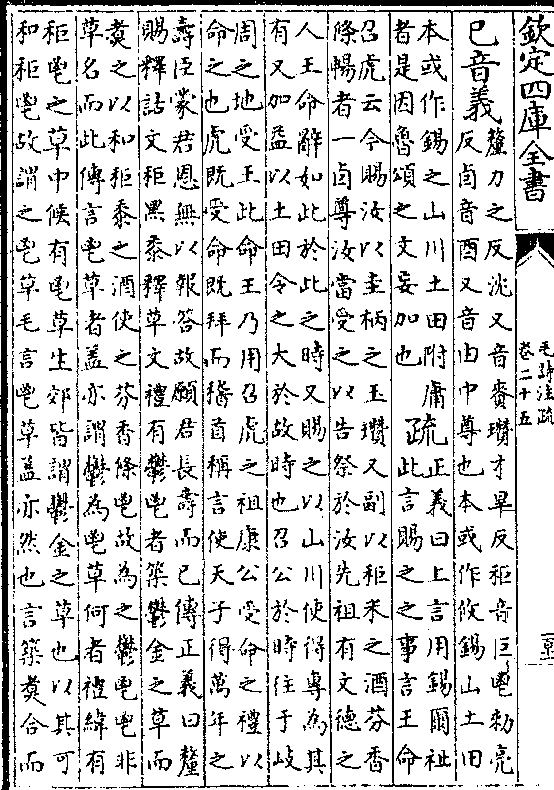 欽定四庫全書
毛詩注疏
卷二十五
已音義釐力之反沈又音賚瓚才旱反秬音巨鬯勑亮
反卣音酉又音由中尊也本或作攸錫山土田
本或作錫之山川土田附庸
者是因魯頌之文妄加也
疏正義曰上言用錫爾祉
此言賜之之事言王命
召虎云今賜汝以圭柄之玉瓚又副以秬米之酒芬香
條暢者一卣尊汝當受之以告祭於汝先祖有文德之
人王命辭如此於此之時又賜之以山川使得專為其
有又加益以土田令之大於故時也召公於時往于岐
周之地受王此命王乃用召虎之祖康公受命之禮以
命之也虎既受命既拜而稽首稱言使天子得萬年之
壽臣蒙君恩無以報答故願君長壽而已傳正義曰釐
賜釋詁文秬黑黍釋草文禮有鬱鬯者築鬱金之草而
煑之以和秬黍之酒使之芬香條鬯故為之鬱鬯鬯非
草名而此傳言鬯草者蓋亦謂鬱為鬯草何者禮緯有
秬鬯之草中候有鬯草生郊皆謂鬱金之草也以其可
和秬鬯故謂之鬯草毛言鬯草蓋亦然也言築煑合而